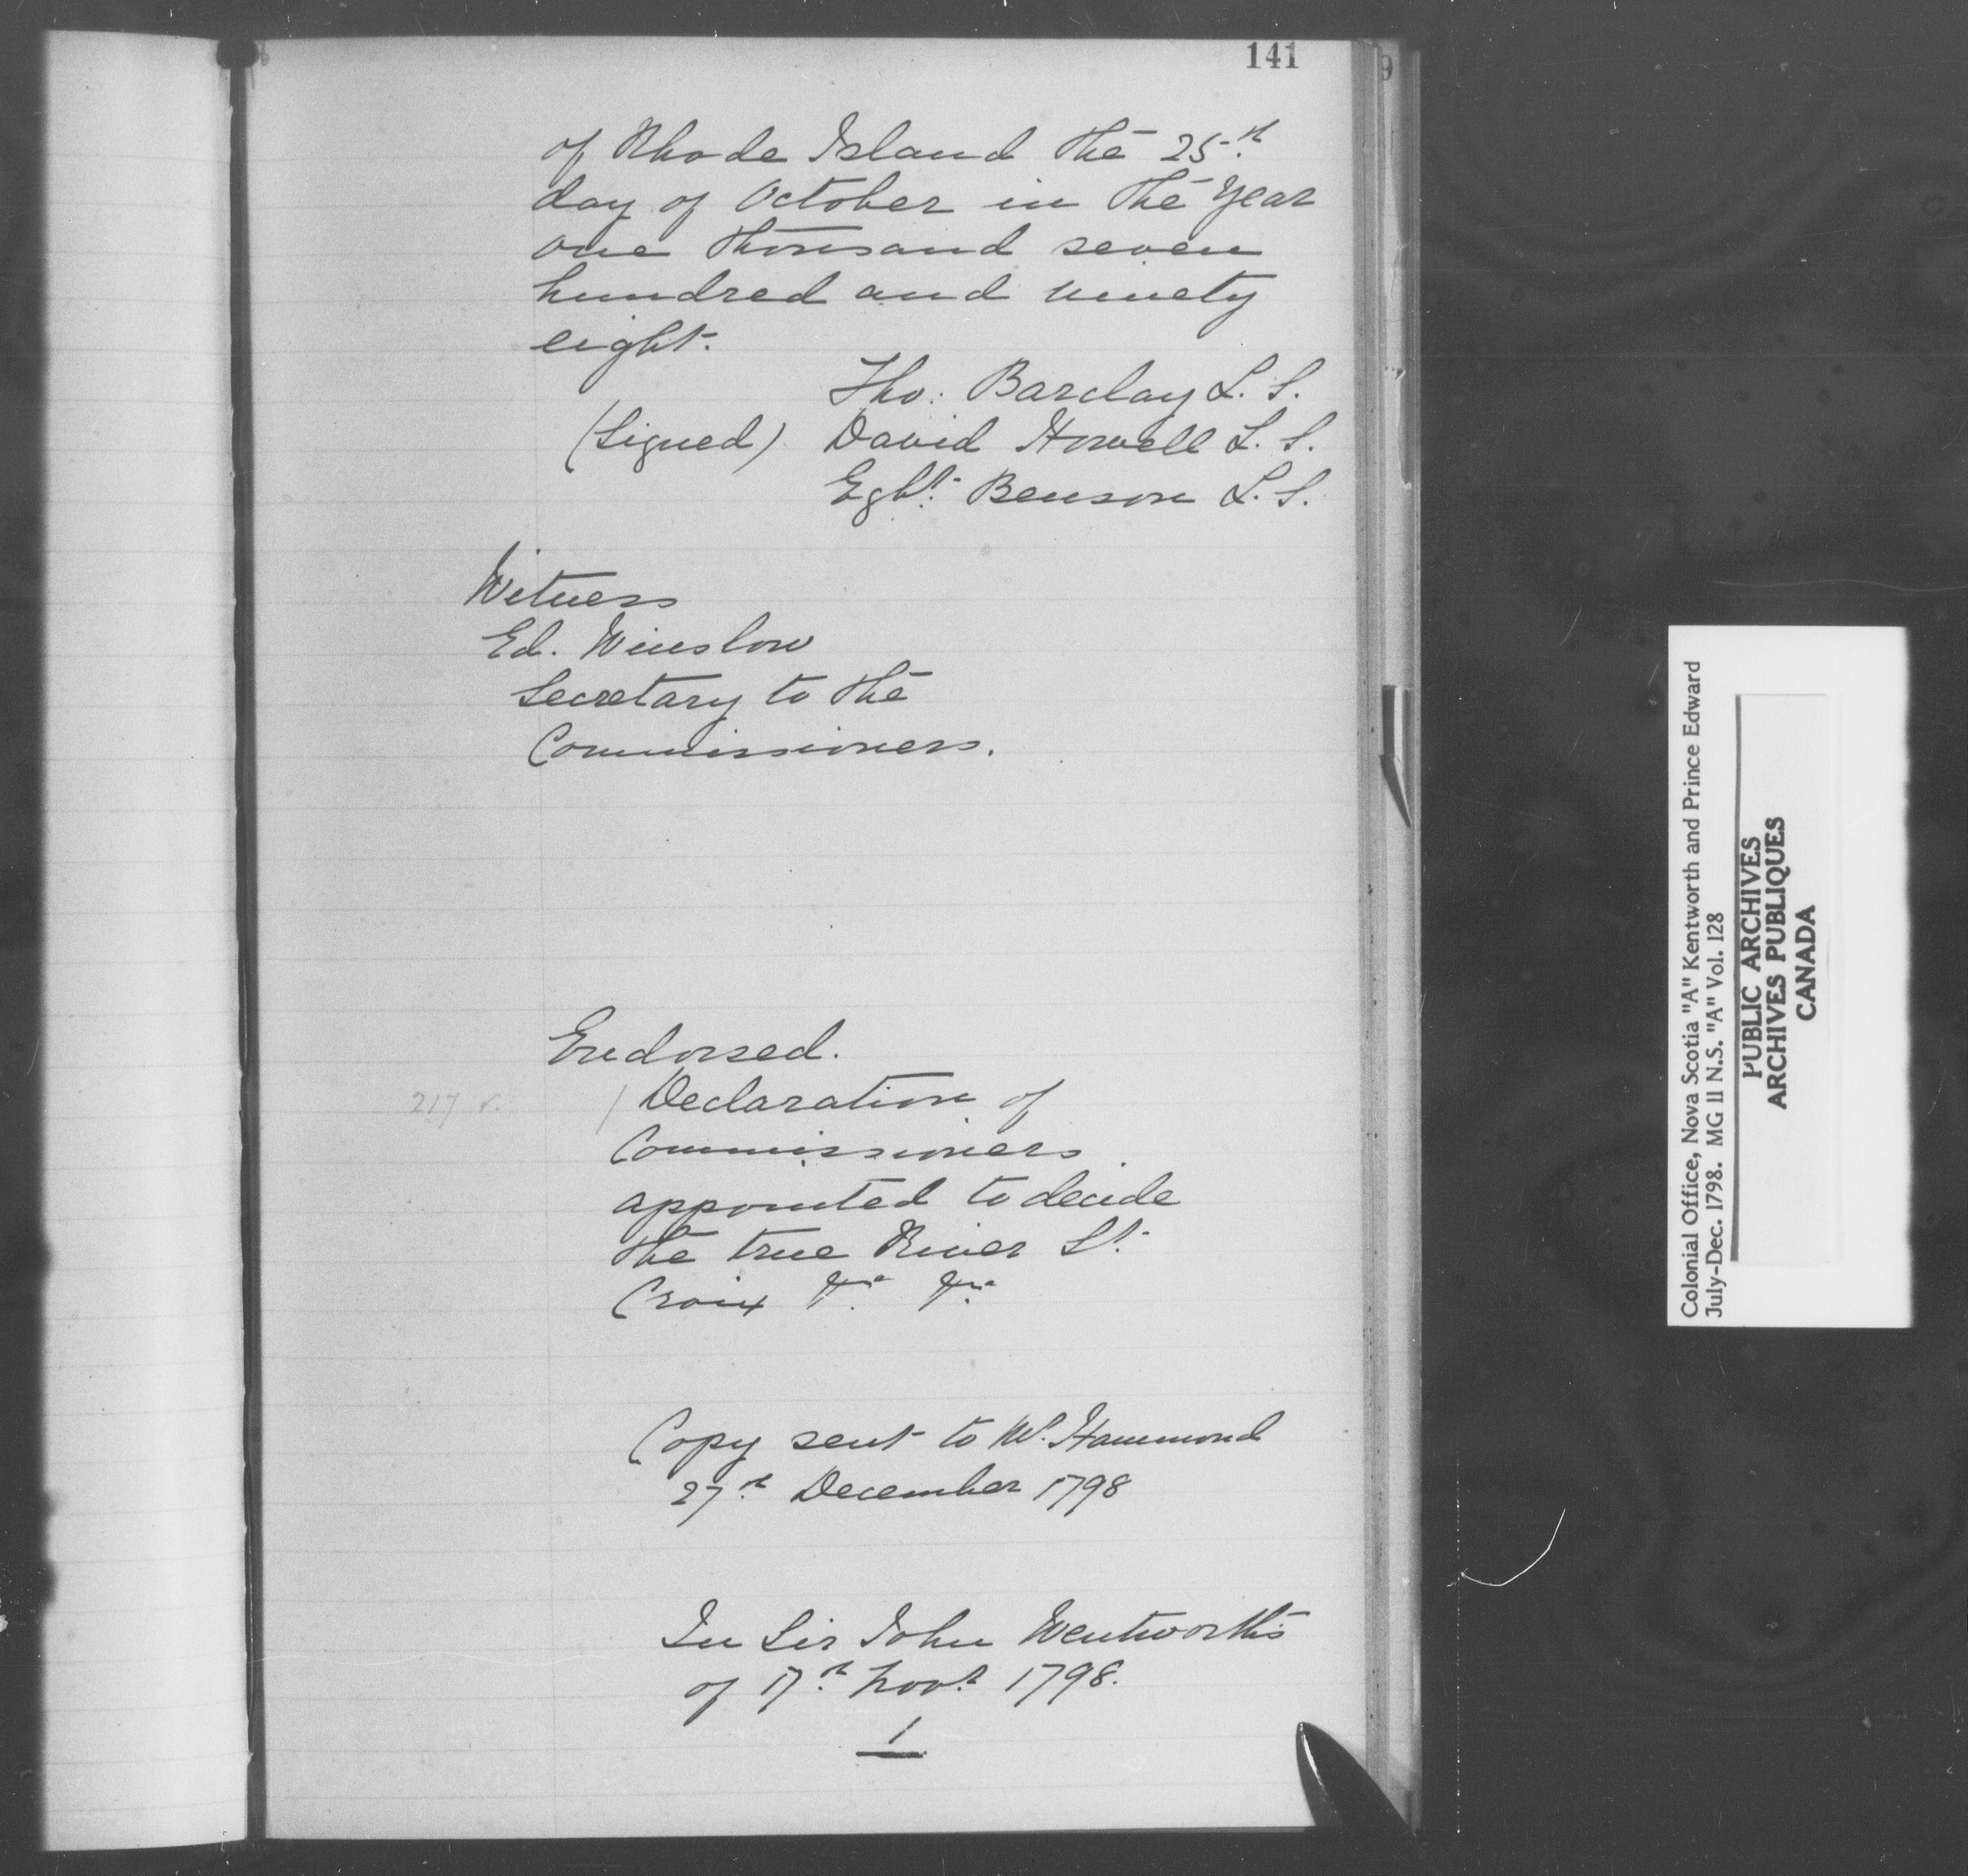 141
of Rhode Island the 25th
day of October in the Year
one thousand seven
hundred and ninety
eight.
Tho: Barclay L. S.
(Signed) David Howell L. S.
Egbt. Benson L. S.
Witness
Ed. Winslow
Secretary to the
Commissioners.
Endorsed.
217 v. / Declaration of
Commissioners
appointed to decide
the true River St.
Croix &c. &c.
Copy sent to Mr. Hammond
27th December 1798
In Sir John Wentworth's
of 17th Novr. 1798.
1
9
Colonial Office, Nova Scotia "A" Kentworth and Prince Edward
July-Dec. 1798. MG 11 N.S. "A" Vol. 128
PUBLIC ARCHIVES
ARCHIVES PUBLIQUES
CANADA